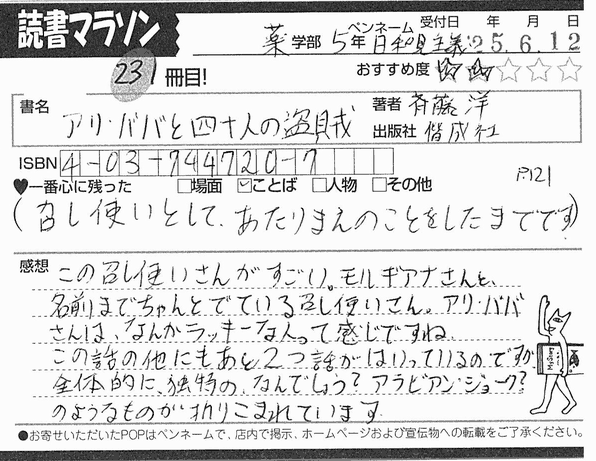 読書マラソン
231冊目!
薬学部 5年 ペンネーム 日和見主義 受付日 年 月 日
25.6.12
おすすめ度 ★★☆☆☆
書名
アリ・ババと四十人の盗賊
著者 斉藤洋
出版社 偕成社
ISBN 4-03-744720-7
♥一番心に残った □場面 ☑ことば □人物 □その他 P.121
(召し使いとして、あたりまえのことをしたまでです)
感想
この召し使いさんがすごい。モルギアナさんと、
名前までちゃんとでている召し使いさん。アリ・ババ
さんは、なんかラッキーな人って感じですね。
この話の他にもあと2つ話がはいっているのですが
全体的に、独特の、なんでしょう?アラビアン・ジョーク?
のようなものが折りこまれています
●お寄せいただいたPOPはペンネームで、店内で掲示、ホームページおよび宣伝物への転載をご了承ください。